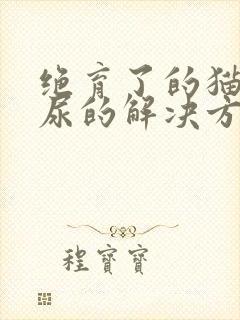 绝育了的猫
尿的解决方
程寶寶